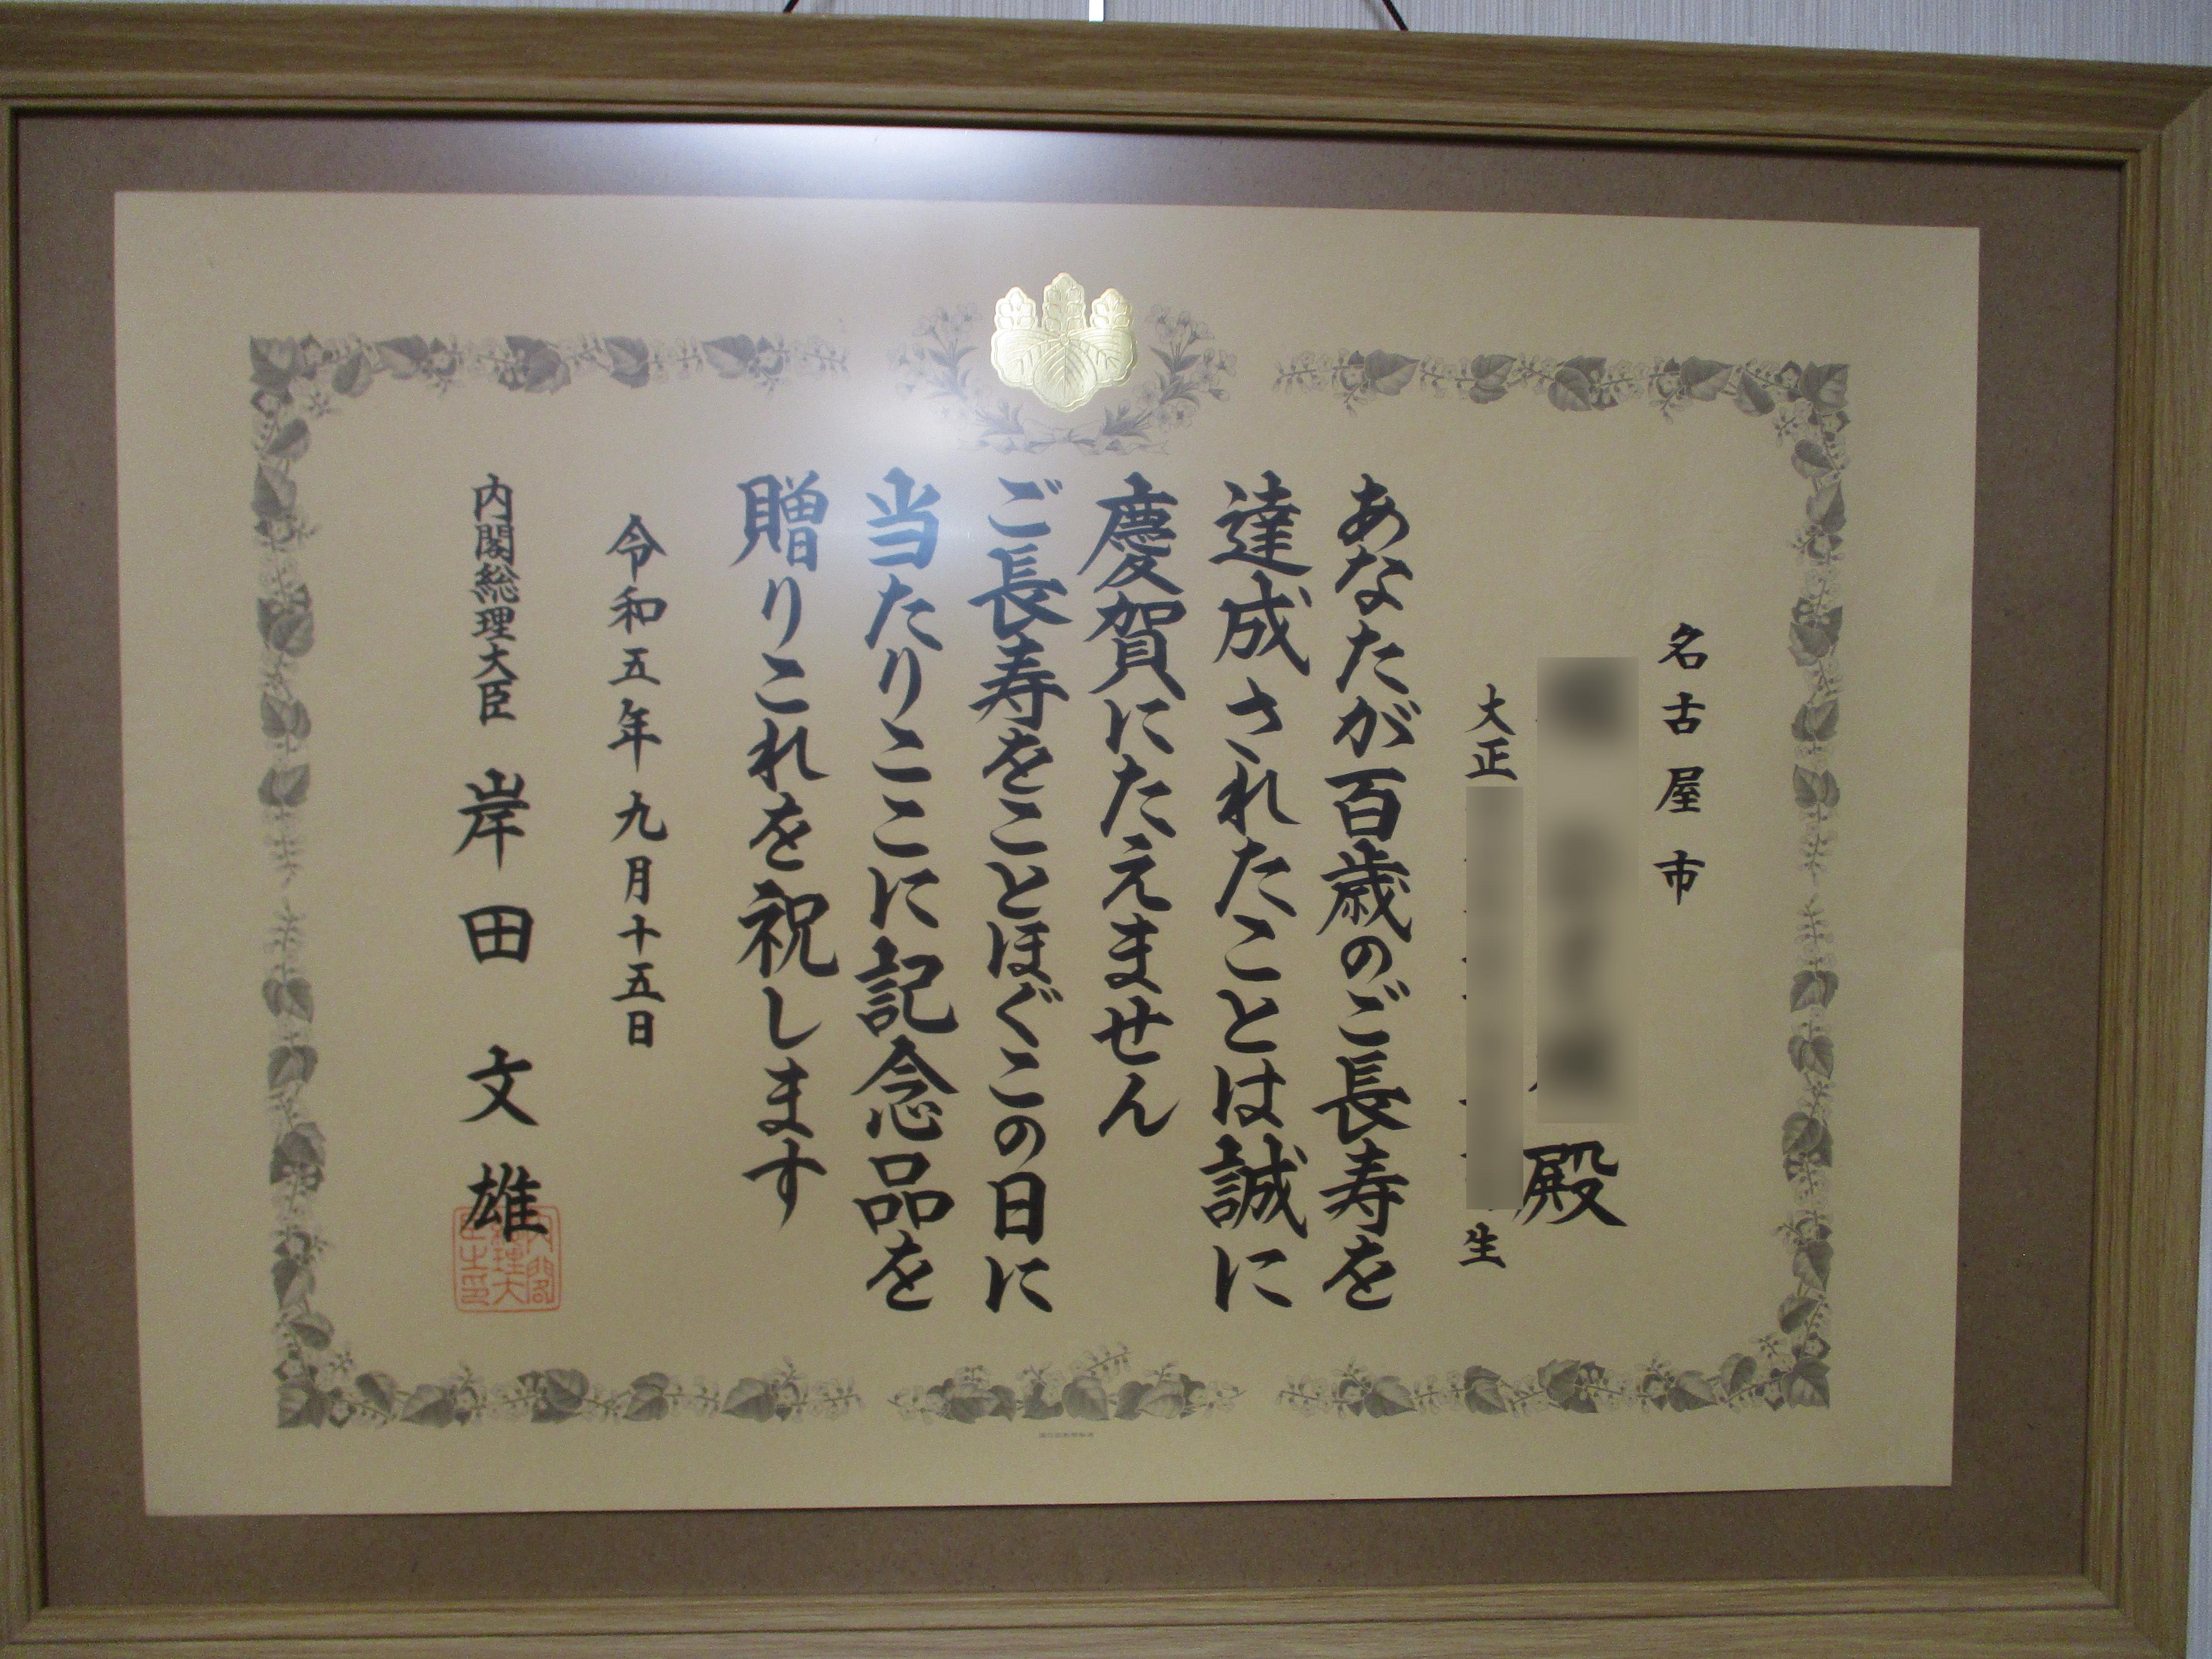 名古屋市
殿
大正
生
あなたが百歳のご長寿を
達成されたことは誠に
慶賀にたえません
ご長寿をことほぐこの日に
当たりここに記念品を
贈りこれを祝します
令和五年九月十五日
内閣総理大臣 岸田文雄